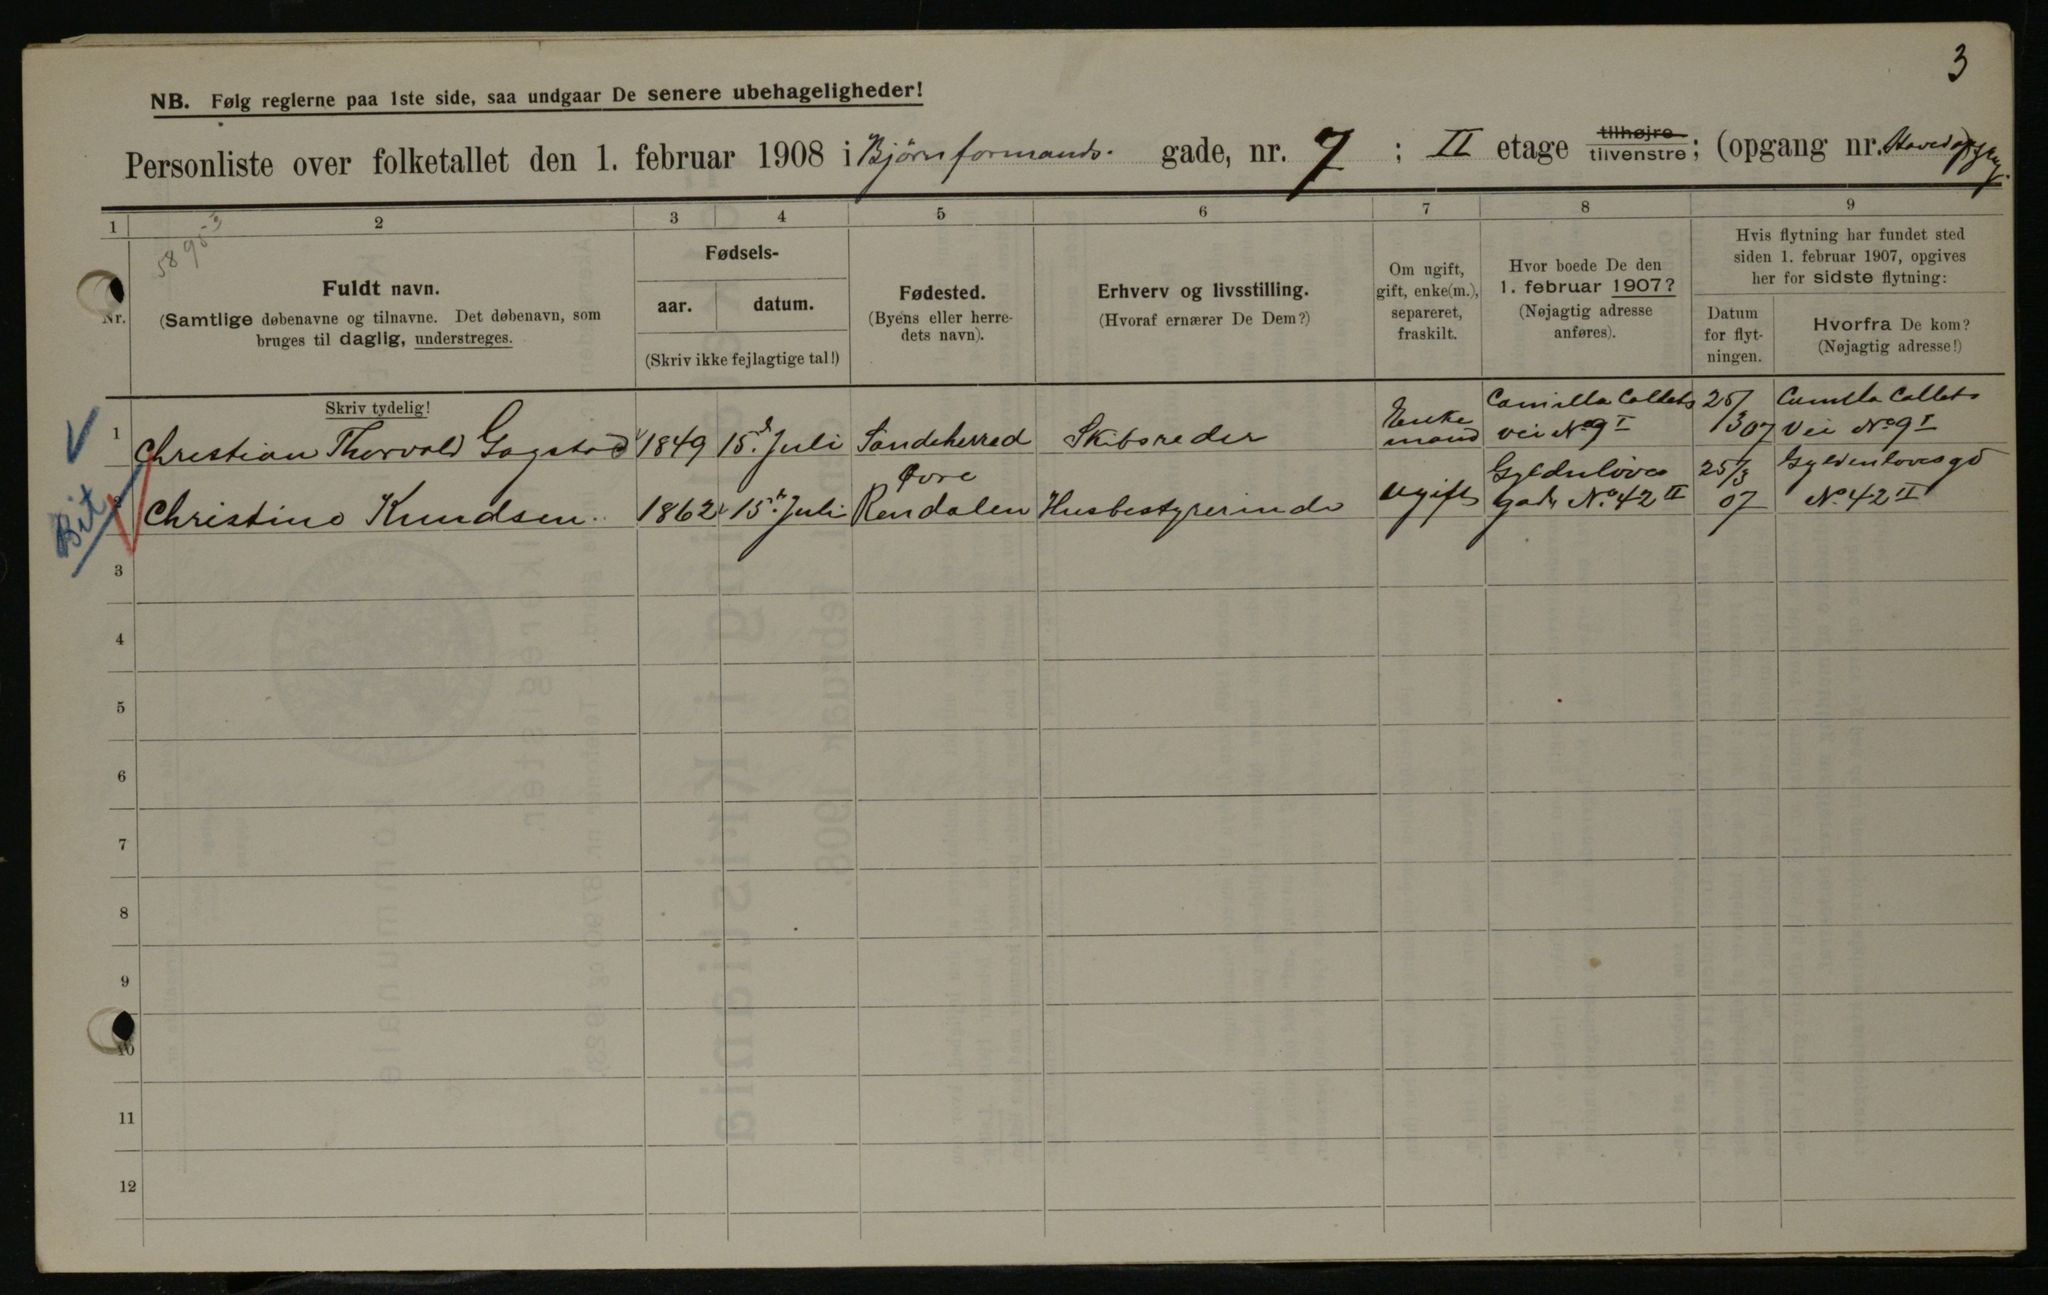 3
NB. Følg reglerne paa 1ste side, saa undgaar De senere ubehageligheder!
Personliste over folketallet den 1. februar 1908 i Bjørnformands- gade, nr. 7 ; II etage tilhøjre tilvenstre; (opgang nr. Hovedopgang.
1 2 3 4 5 6 7 8 9
58903
Nr.
Fuldt navn.
(Samtlige døbenavne og tilnavne. Det døbenavn, som
bruges til daglig, understreges.
Skriv tydelig!
Fødsels-
aar. datum.
(Skriv ikke fejlagtige tal!)
Fødested.
(Byens eller herre-
dets navn).
Erhverv og livsstilling.
(Hvoraf ernærer De Dem?)
Om ugift,
gift, enke(m.),
separeret,
fraskilt.
Hvor boede De den
1. februar 1907?
(Nøjagtig adresse
anføres).
Hvis flytning har fundet sted
siden 1. februar 1907, opgives
her for sidste flytning:
Datum
for flyt-
ningen.
Hvorfra De kom?
(Nøjagtig adresse!)
1 Christian Thorvald Gogstad 1849 15d Juli Sandeherred Skibsreder Enke mand Camilla Collets vei No 9 I 25/3 07 Camilla Collets Vei No 9 I
Bit
2 Christine Knudsen. 1862 15d Juli Øvre Rendalen Husbestyrerinde Ugift Gyldnløves gade No. 42 II 25/3 07 Gyldenlovesgd No. 42 II
3
4
5
6
7
8
9
10
11
12